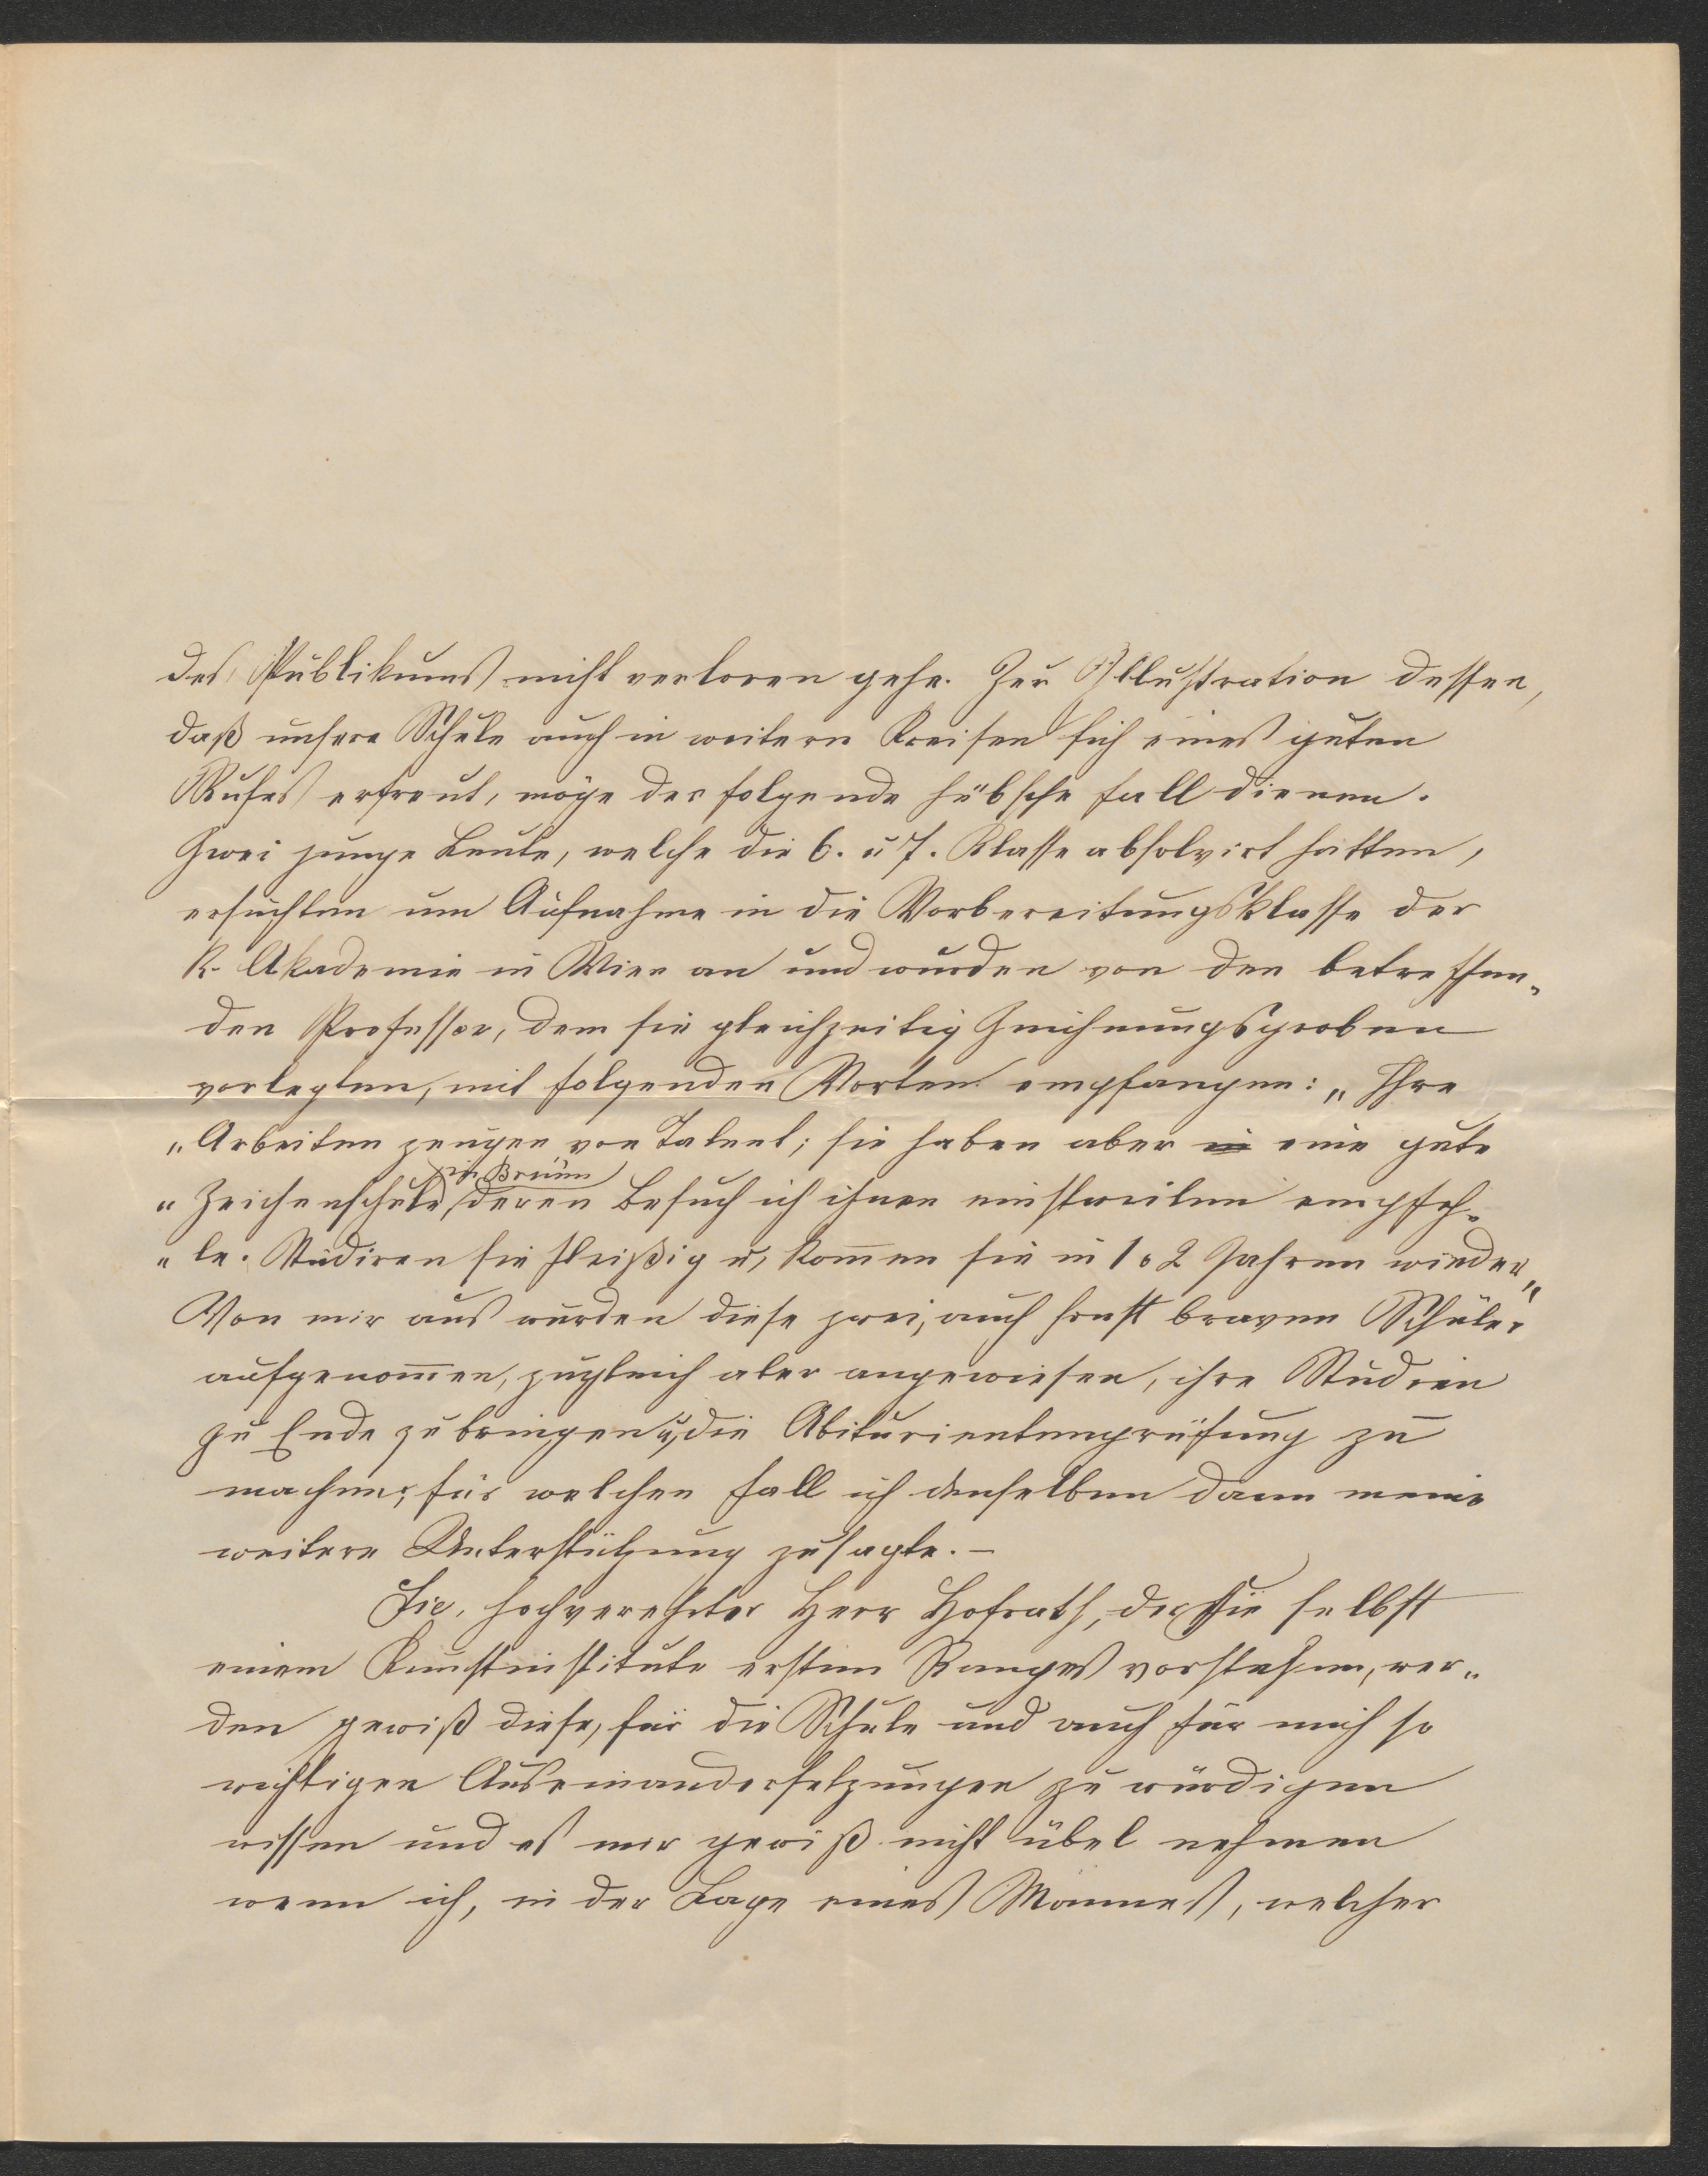 des Publikums nicht verloren gehe. Zur Illustration dessen,
daß unsere Schule auch in weitern Kreisen sich eines guten
Rufes erfreut, möge der folgende hübsche Fall dienen.
Zwei junge Leute, welche die 6. u 7. Klasse absolvirt hatten,
ersuchten um Aufnahme in die Vorbereitungsklasse der
k. Akademie in Wien an und wurden von den betreffen-
den Professor, dem sie gleichzeitig Zeichnungsproben
vorlegten, mit folgenden Worten empfangen: „Ihre
„Arbeiten zeugen von Talent; sie haben aber in eine gute
in Brünn
„Zeichenschule, deren Besuch ich ihnen einstweilen empfeh-
„le. Studiren sie fleißig u, kom̄en sie in 1 o 2 Jahren wieder“
Von mir aus wurden diese zwei, auch sonst braven Schüler
aufgenom̄en, zugleich aber angewiesen, ihre Studien
zu Ende zu bringen u, die Abiturientenprüfung zu
machen; für welchen Fall ich denselben dann meine
weitere Unterstützung zusagte. –
Sie, hochverehrter Herr Hofrath, der Sie selbst
einem Kunstinstitute ersten Ranges vorstehen, wer-
den gewiß diese, für die Schule und auch für mich so
wichtigen Auseinandersetzungen zu würdigen
wissen und es mir gewiß nicht übel nehmen
wenn ich, in der Lage eines Mannes, welcher